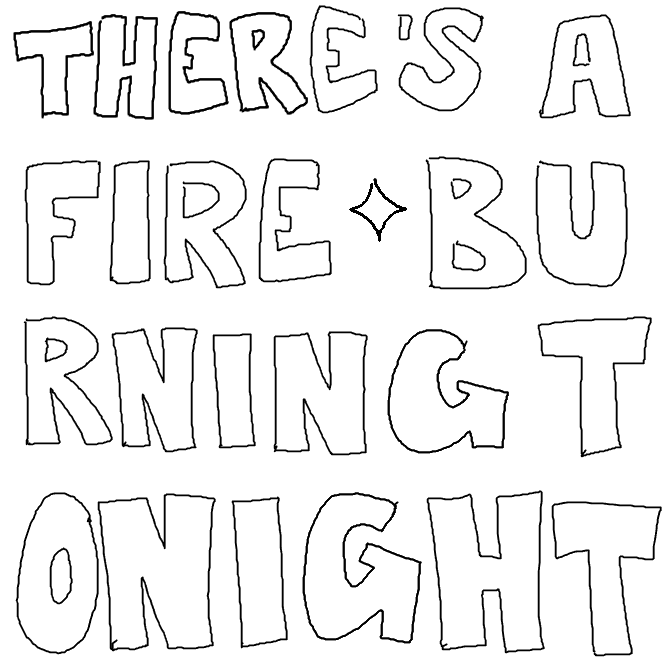 THERE'S A
FIRE BU
RNING T
ONIGHT